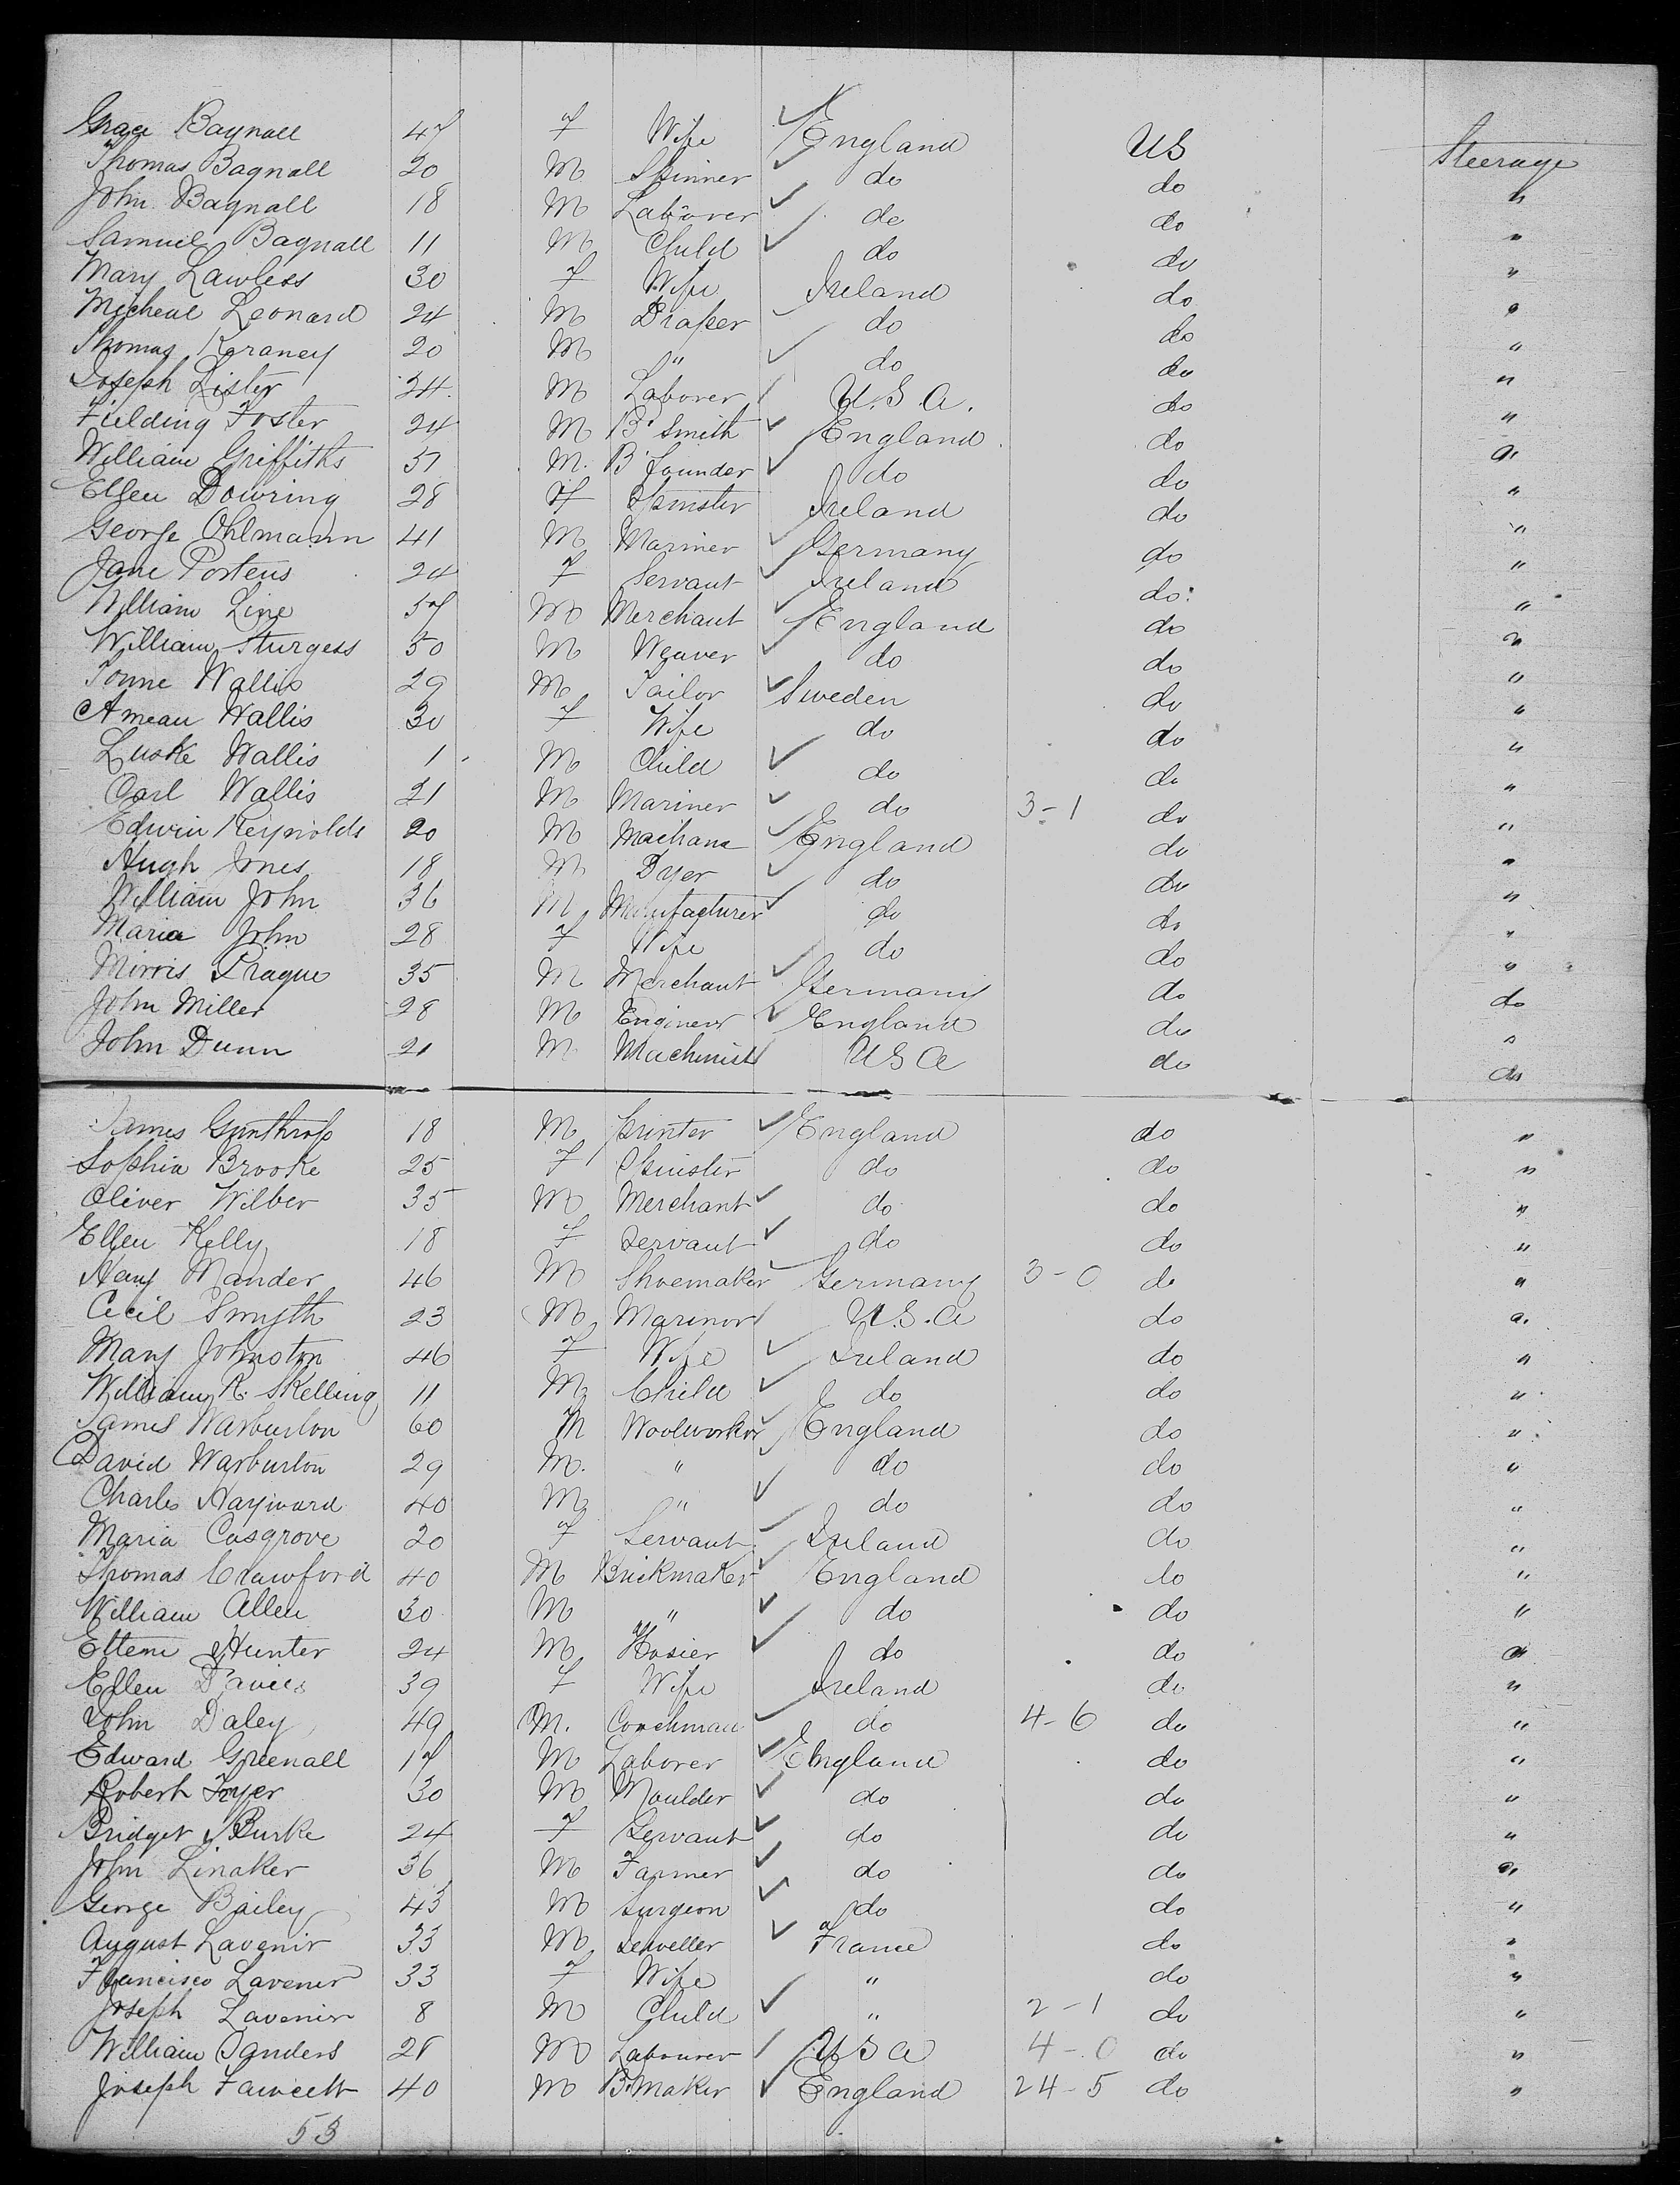 Grace Bagnall 47 F Wife England US Steerage
Thomas Bagnall 20 M Spinner do do "
John Bagnall 18 M Laborer do do "
Samuel Bagnall 11 M Child do do "
Mary Lawless 30 F Wife Ireland do "
Micheal Leonard 24 M Draper do do "
Thomas Karaney 20 M " do do "
Joseph Lister 24 M Laborer U.S.A. do "
Fielding Foster 24 M B. Smith England do "
William Griffiths 37 M. B. founder do do "
Ellen Dowring 28 F Spinster Ireland do "
George Ohlmann 41 M Mariner Germany do "
Jane Porteus 24 F Servant Ireland do "
William Line 37 M Merchant England do "
William Sturgess 50 M Weaver do do "
Wallis 29 M Tailor Sweden do "
Ameau Wallis 30 F Wife do do "
Luske Wallis 1 M Child do do "
Carl Wallis 21 M Mariner do 3-1 do "
Edwin Reynolds 20 M England do "
Hugh Jones 18 M Dyer do do "
William John 36 M Manufacturer do do "
Maria John 28 F Wife do do "
Morris Prague 35 M Merchant Germany do do
John Miller 28 M Engineer England do "
John Dunn 21 M Machinist USA do do
James Gunthrop 18 M printer England do "
Sophia Brooke 25 F Spinster do do "
Oliver Wilber 35 M Merchant do do "
Ellen Kelly 18 F Servant do do "
Mander 46 M Shoemaker Germany 3-0 do "
Cecil Smyth 23 M Marinor U.S.A do "
Mary Johnston 46 F Wife Ireland do "
William R. Skelling 11 M Child do do "
James Warburton 60 M Woolworker England do "
David Warburton 29 M. " do do "
Charles Hayward 40 M " do do "
Maria Cosgrove 20 F Servant Ireland do "
Thomas Crawford 40 M Brickmaker England do "
William Allen 30 M " do do "
Hunter 24 M Hosier do do "
Ellen Davies 39 F Wife Ireland do "
John Daley 49 M. Coachman do 4-6 do "
Edward Greenall 17 M Laborer England do "
Robert Fryer 30 M Moulder do do "
Bridget Burke 24 F Servant do do "
John Linaker 36 M Farmer do do "
George Bailey 43 M Surgeon do do "
August Lavenir 33 M Jeweller France do "
Francisco Lavenir 33 F Wife " do "
Joseph Lavenir 8 M Child " 2-1 do "
William Sanders 28 M Labourer USA 4-0 do "
Joseph Fawcett 40 M B. maker England 24-5 do "
53